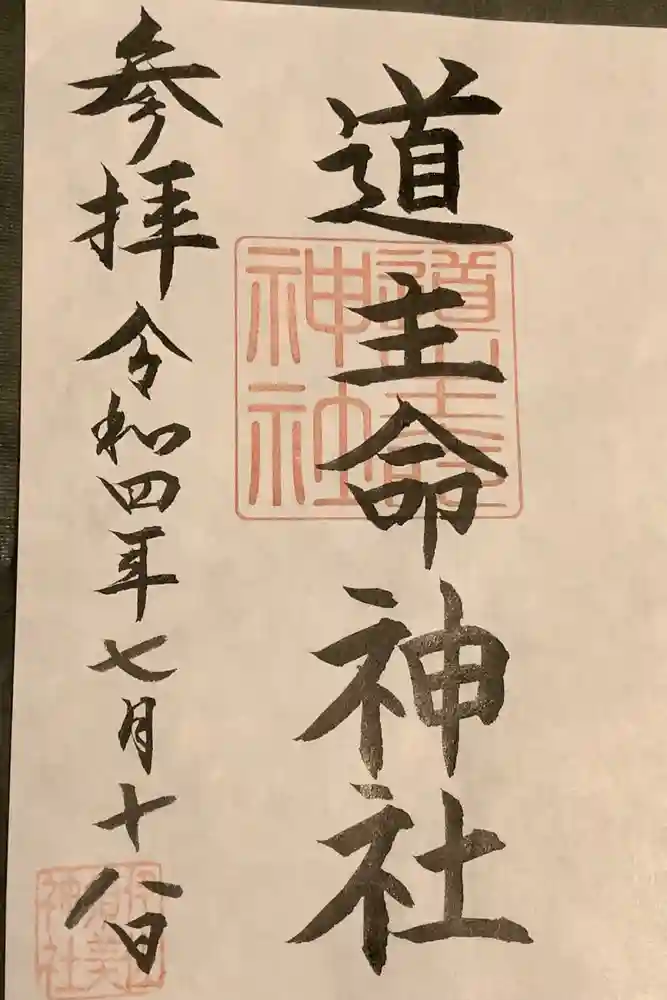 道主命神社
参拝 令和四年七月十八日
神社
神社